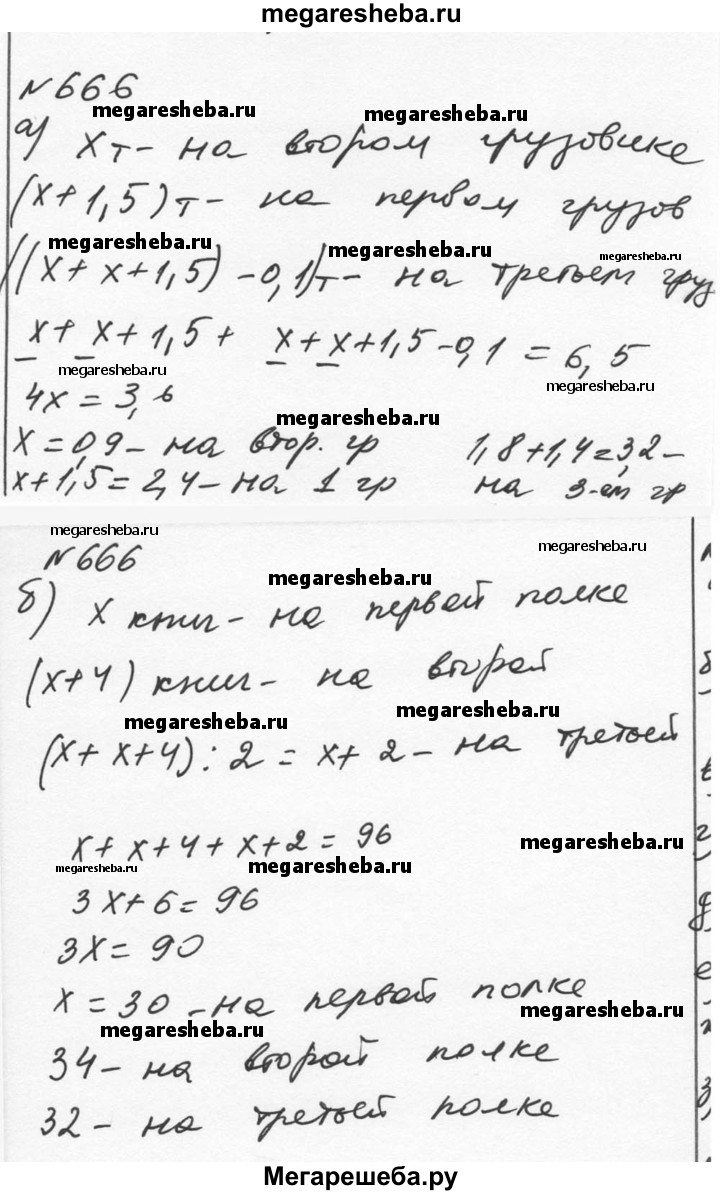 megaresheba.ru
№666
megaresheba.ru megaresheba.ru
а) х т - на втором грузовике
(х+1,5) т - на первом грузов
megaresheba.ru megaresheba.ru megaresheba.ru
((х+х+1,5) -0,1)т- на третьем груз
х+х+1,5+ х+х+1,5-0,1 = 6,5
megaresheba.ru megaresheba.ru
4х = 3,6
megaresheba.ru
х=0,9- на втор. гр 1,8+1,4=3,2-
х+1,5=2,4-на 1 гр на 3-ем гр
megaresheba.ru megaresheba.ru
№666
megaresheba.ru
б) х книг - на первой полке
(х+4) книг - на второй
megaresheba.ru megaresheba.ru
(х+х+4):2 = х+2 - на третьей
х+х+4+х+2=96
megaresheba.ru megaresheba.ru megaresheba.ru
3х+6=96
3х=90
х=30 -на первой полке
megaresheba.ru megaresheba.ru
34- на второй полке
32- на третьей полке
Мегарешеба.ру